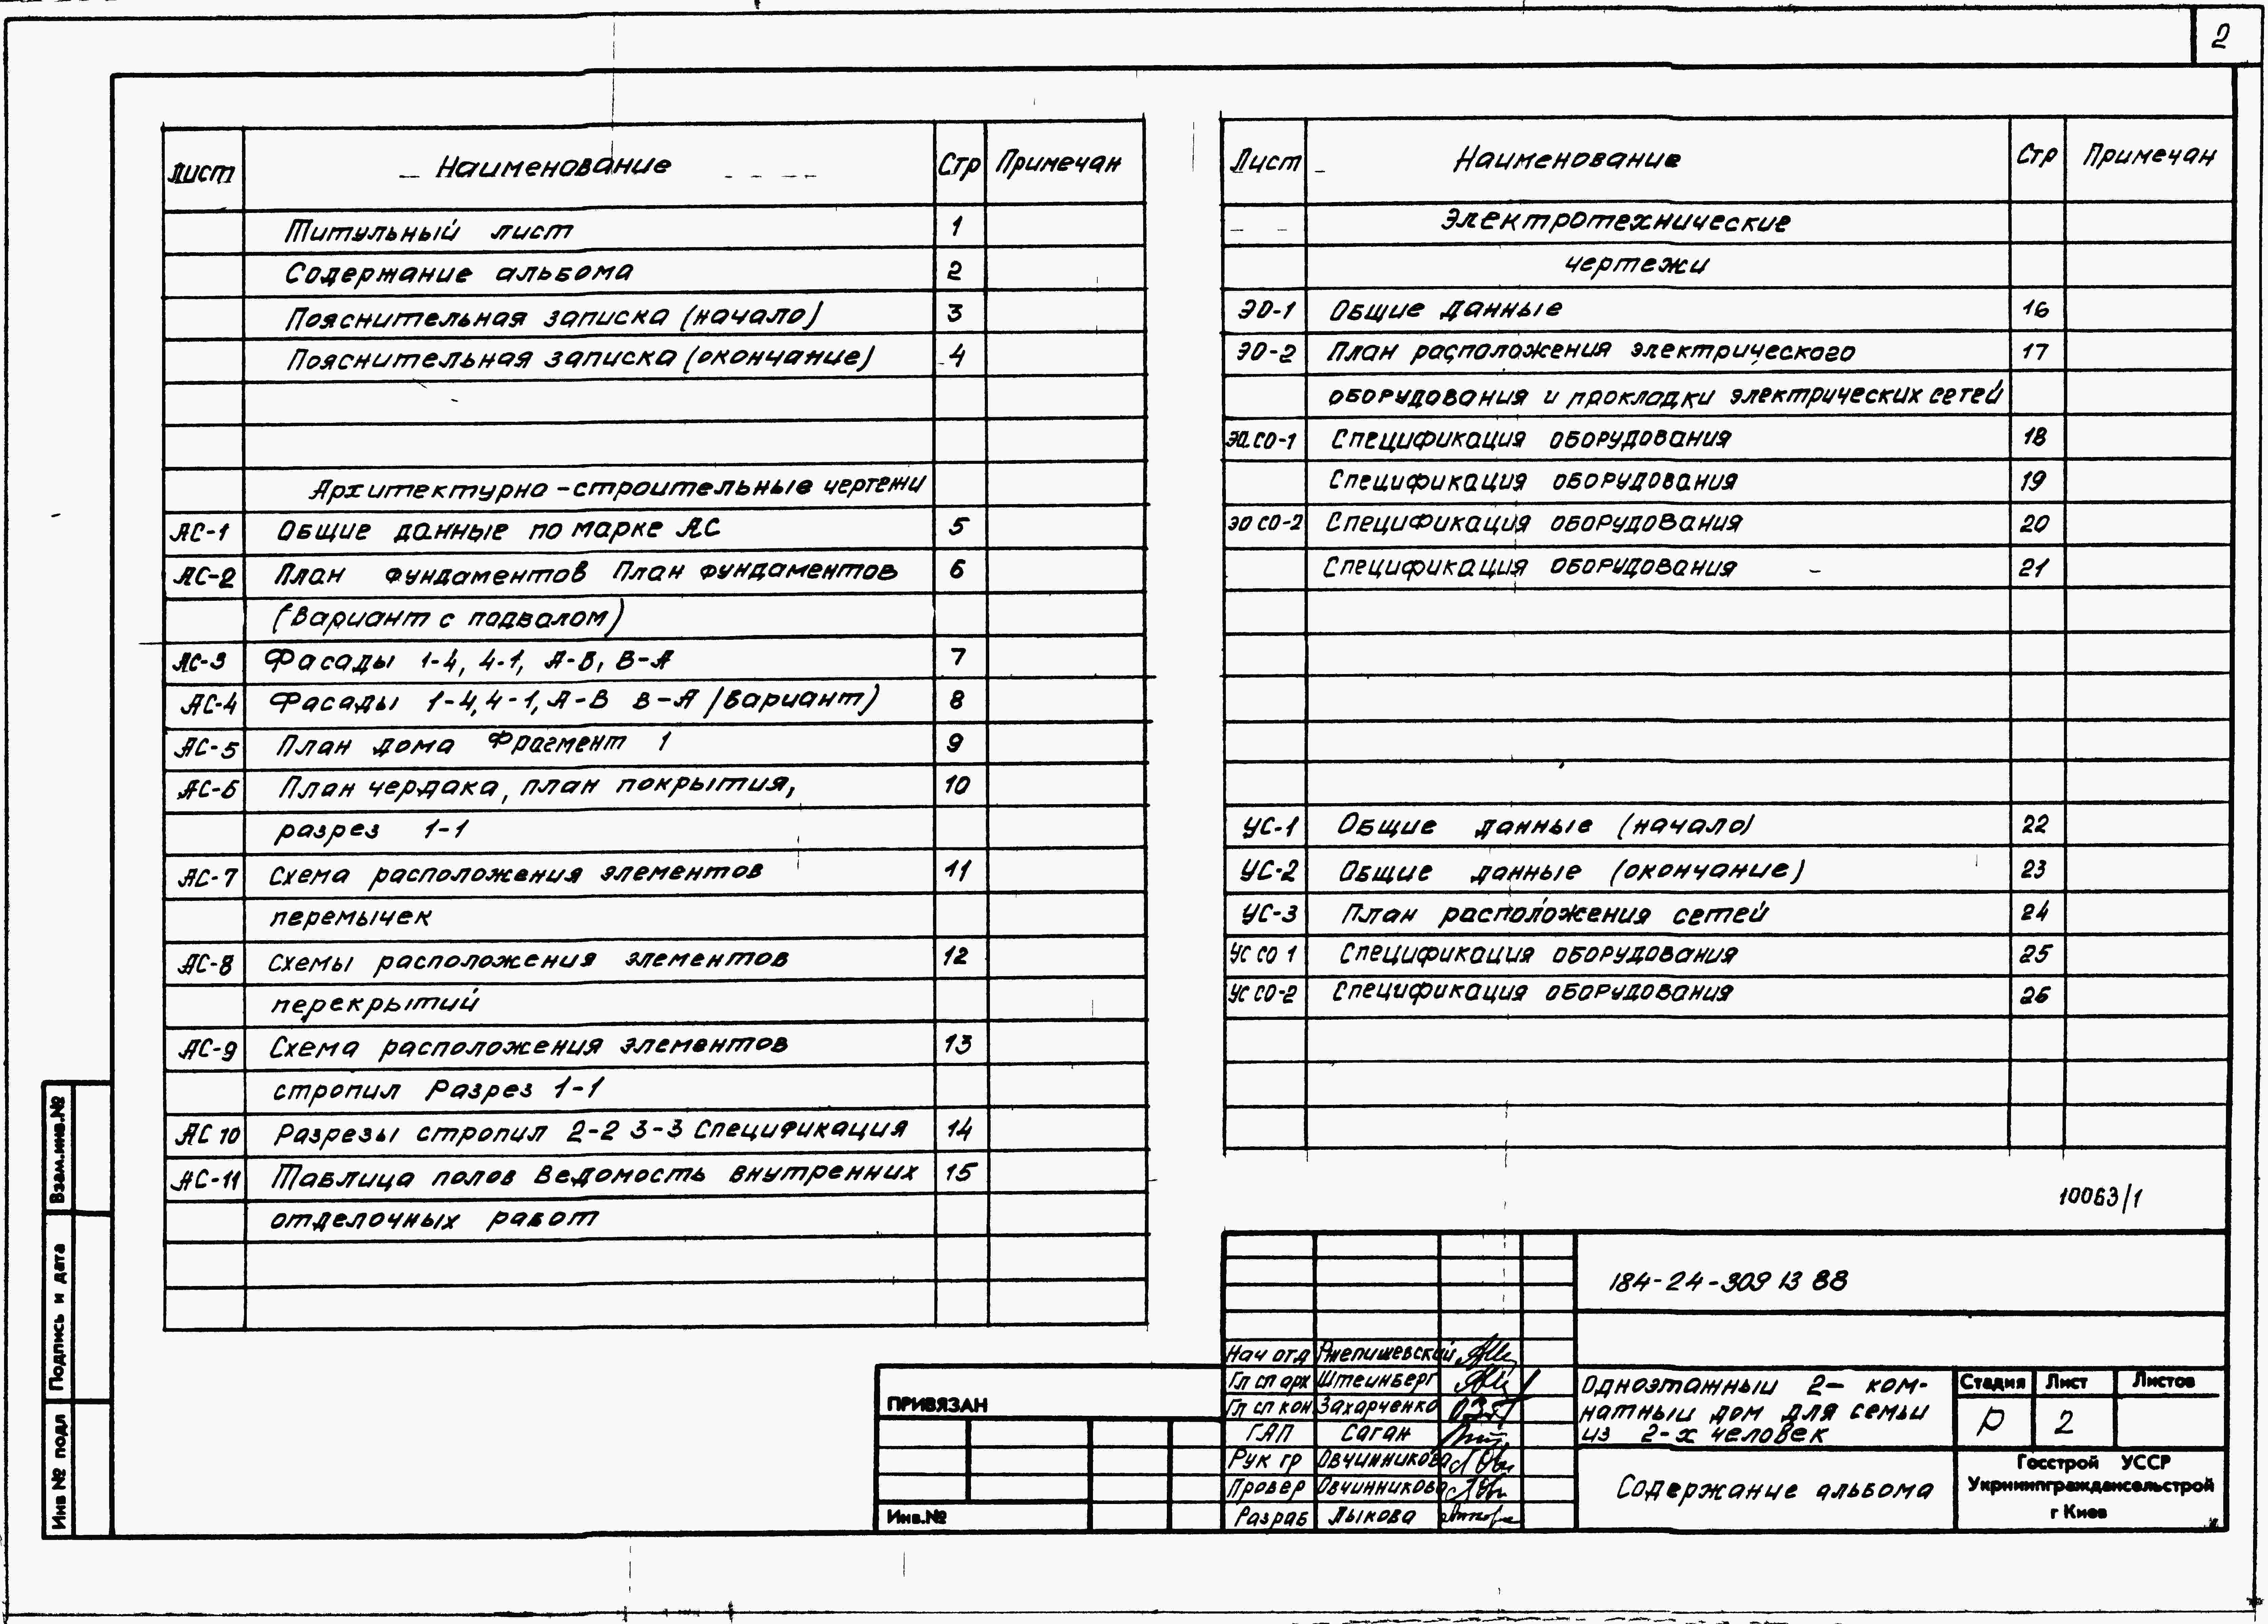 2
Лист Наименование Стр Примечан
Титульный лист 1
Содержание альбома 2
Пояснительная записка (начало) 3
Пояснительная записка (окончание) 4
Архитектурно-строительные чертежи
АС-1 Общие данные по марке АС 5
АС-2 План фундаментов План фундаментов 6
(Вариант с подвалом)
АС-3 Фасады 1-4, 4-1, А-В, В-А 7
АС-4 Фасады 1-4, 4-1, А-В В-А (вариант) 8
АС-5 План дома Фрагмент 1 9
АС-6 План чердака, план покрытия, 10
разрез 1-1
АС-7 Схема расположения элементов 11
перемычек
АС-8 Схемы расположения элементов 12
перекрытий
АС-9 Схема расположения элементов 13
стропил Разрез 1-1
АС 10 Разрезы стропил 2-2 3-3 Спецификация 14
АС-11 Таблица полов Ведомость внутренних 15
отделочных работ
Лист Наименование Стр Примечан
Электротехнические
чертежи
ЭО-1 Общие данные 16
ЭО-2 План расположения электрического 17
оборудования и прокладки электрических сетей
ЭО.СО-1 Спецификация оборудования 18
Спецификация оборудования 19
ЭО СО-2 Спецификация оборудования 20
Спецификация оборудования 21
УС-1 Общие данные (начало) 22
УС-2 Общие данные (окончание) 23
УС-3 План расположения сетей 24
УС СО 1 Спецификация оборудования 25
УС СО-2 Спецификация оборудования 26
10063/1
184-24-309 13 88
Нач отд Ржепишевский
Гл сп арх Штеинберг
Гл сп кон Захарченко
ГАП Саган
Рук гр Овчинникова
Провер Овчинникова
Разраб Лыкова
Одноэтажныи 2- ком-
натныи дом для семьи
из 2-х человек
Стадия Лист Листов
Р 2
Содержание альбома
Госстрой УССР
Укрниипграждансельстрой
г Киев
ПРИВЯЗАН
Инв.№
Взам.инв.№
Подпись и дата
Инв № подл